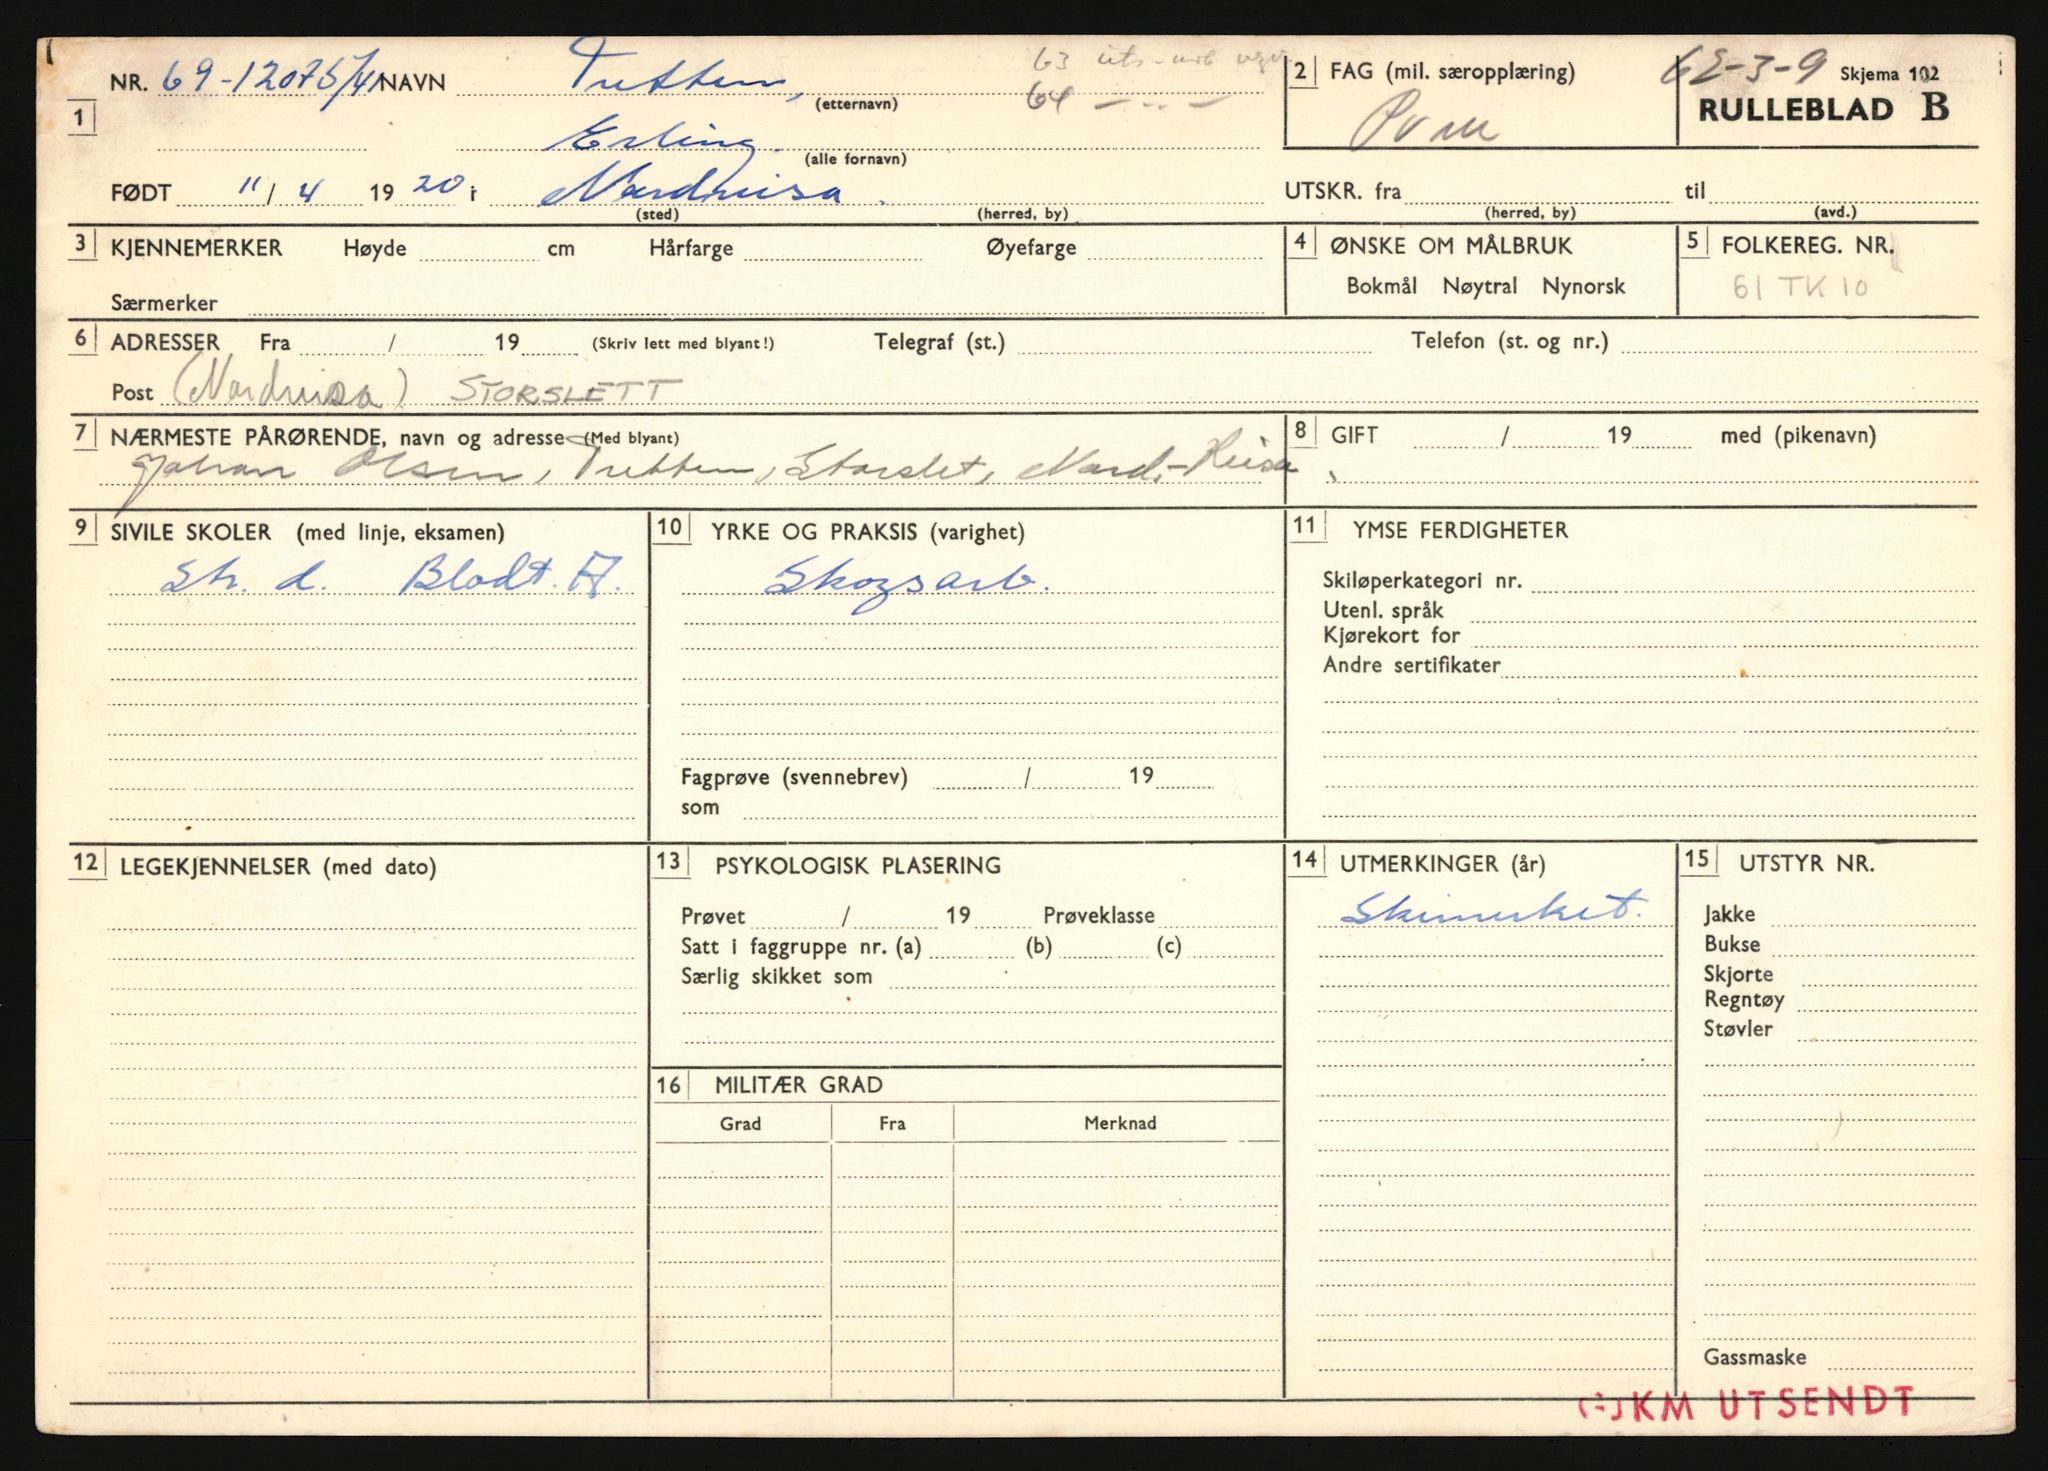 NR. 69-12075/41 NAVN Tretten, (etternavn)
63 uts-
64 — " —
1
Erling. (alle fornavn)
FØDT 11/4 1920 i Nordreisa.
(sted) (herred, by)
2 FAG (mil. særopplæring)
62-3-9 Skjema 102
RULLEBLAD B
UTSKR. fra til
(herred, by) (avd.)
3 KJENNEMERKER Høyde cm Hårfarge Øyefarge
Særmerker
4 ØNSKE OM MÅLBRUK
Bokmål Nøytral Nynorsk
5 FOLKEREG. NR.
61 TK 10
6 ADRESSER Fra / 19 (Skriv lett med blyant!) Telegraf (st.) Telefon (st. og nr.)
Post (Nordreisa) STORSLETT
7 NÆRMESTE PÅRØRENDE, navn og adresse (Med blyant)
Johan Olsen, Tretten, Storslet, Nord-Reisa
8 GIFT / 19 med (pikenavn)
9 SIVILE SKOLER (med linje, eksamen)
Str. d. Blodt. A.
10 YRKE OG PRAKSIS (varighet)
Skogsarb.
Fagprøve (svennebrev) / 19
som
11 YMSE FERDIGHETER
Skiløperkategori nr.
Utenl. språk
Kjørekort for
Andre sertifikater
12 LEGEKJENNELSER (med dato)
13 PSYKOLOGISK PLASERING
Prøvet / 19 Prøveklasse
Satt i faggruppe nr. (a) (b) (c)
Særlig skikket som
14 UTMERKINGER (år)
Skimerket.
15 UTSTYR NR.
Jakke
Bukse
Skjorte
Regntøy
Støvler
Gassmaske
16 MILITÆR GRAD
Grad Fra Merknad
KM UTSENDT